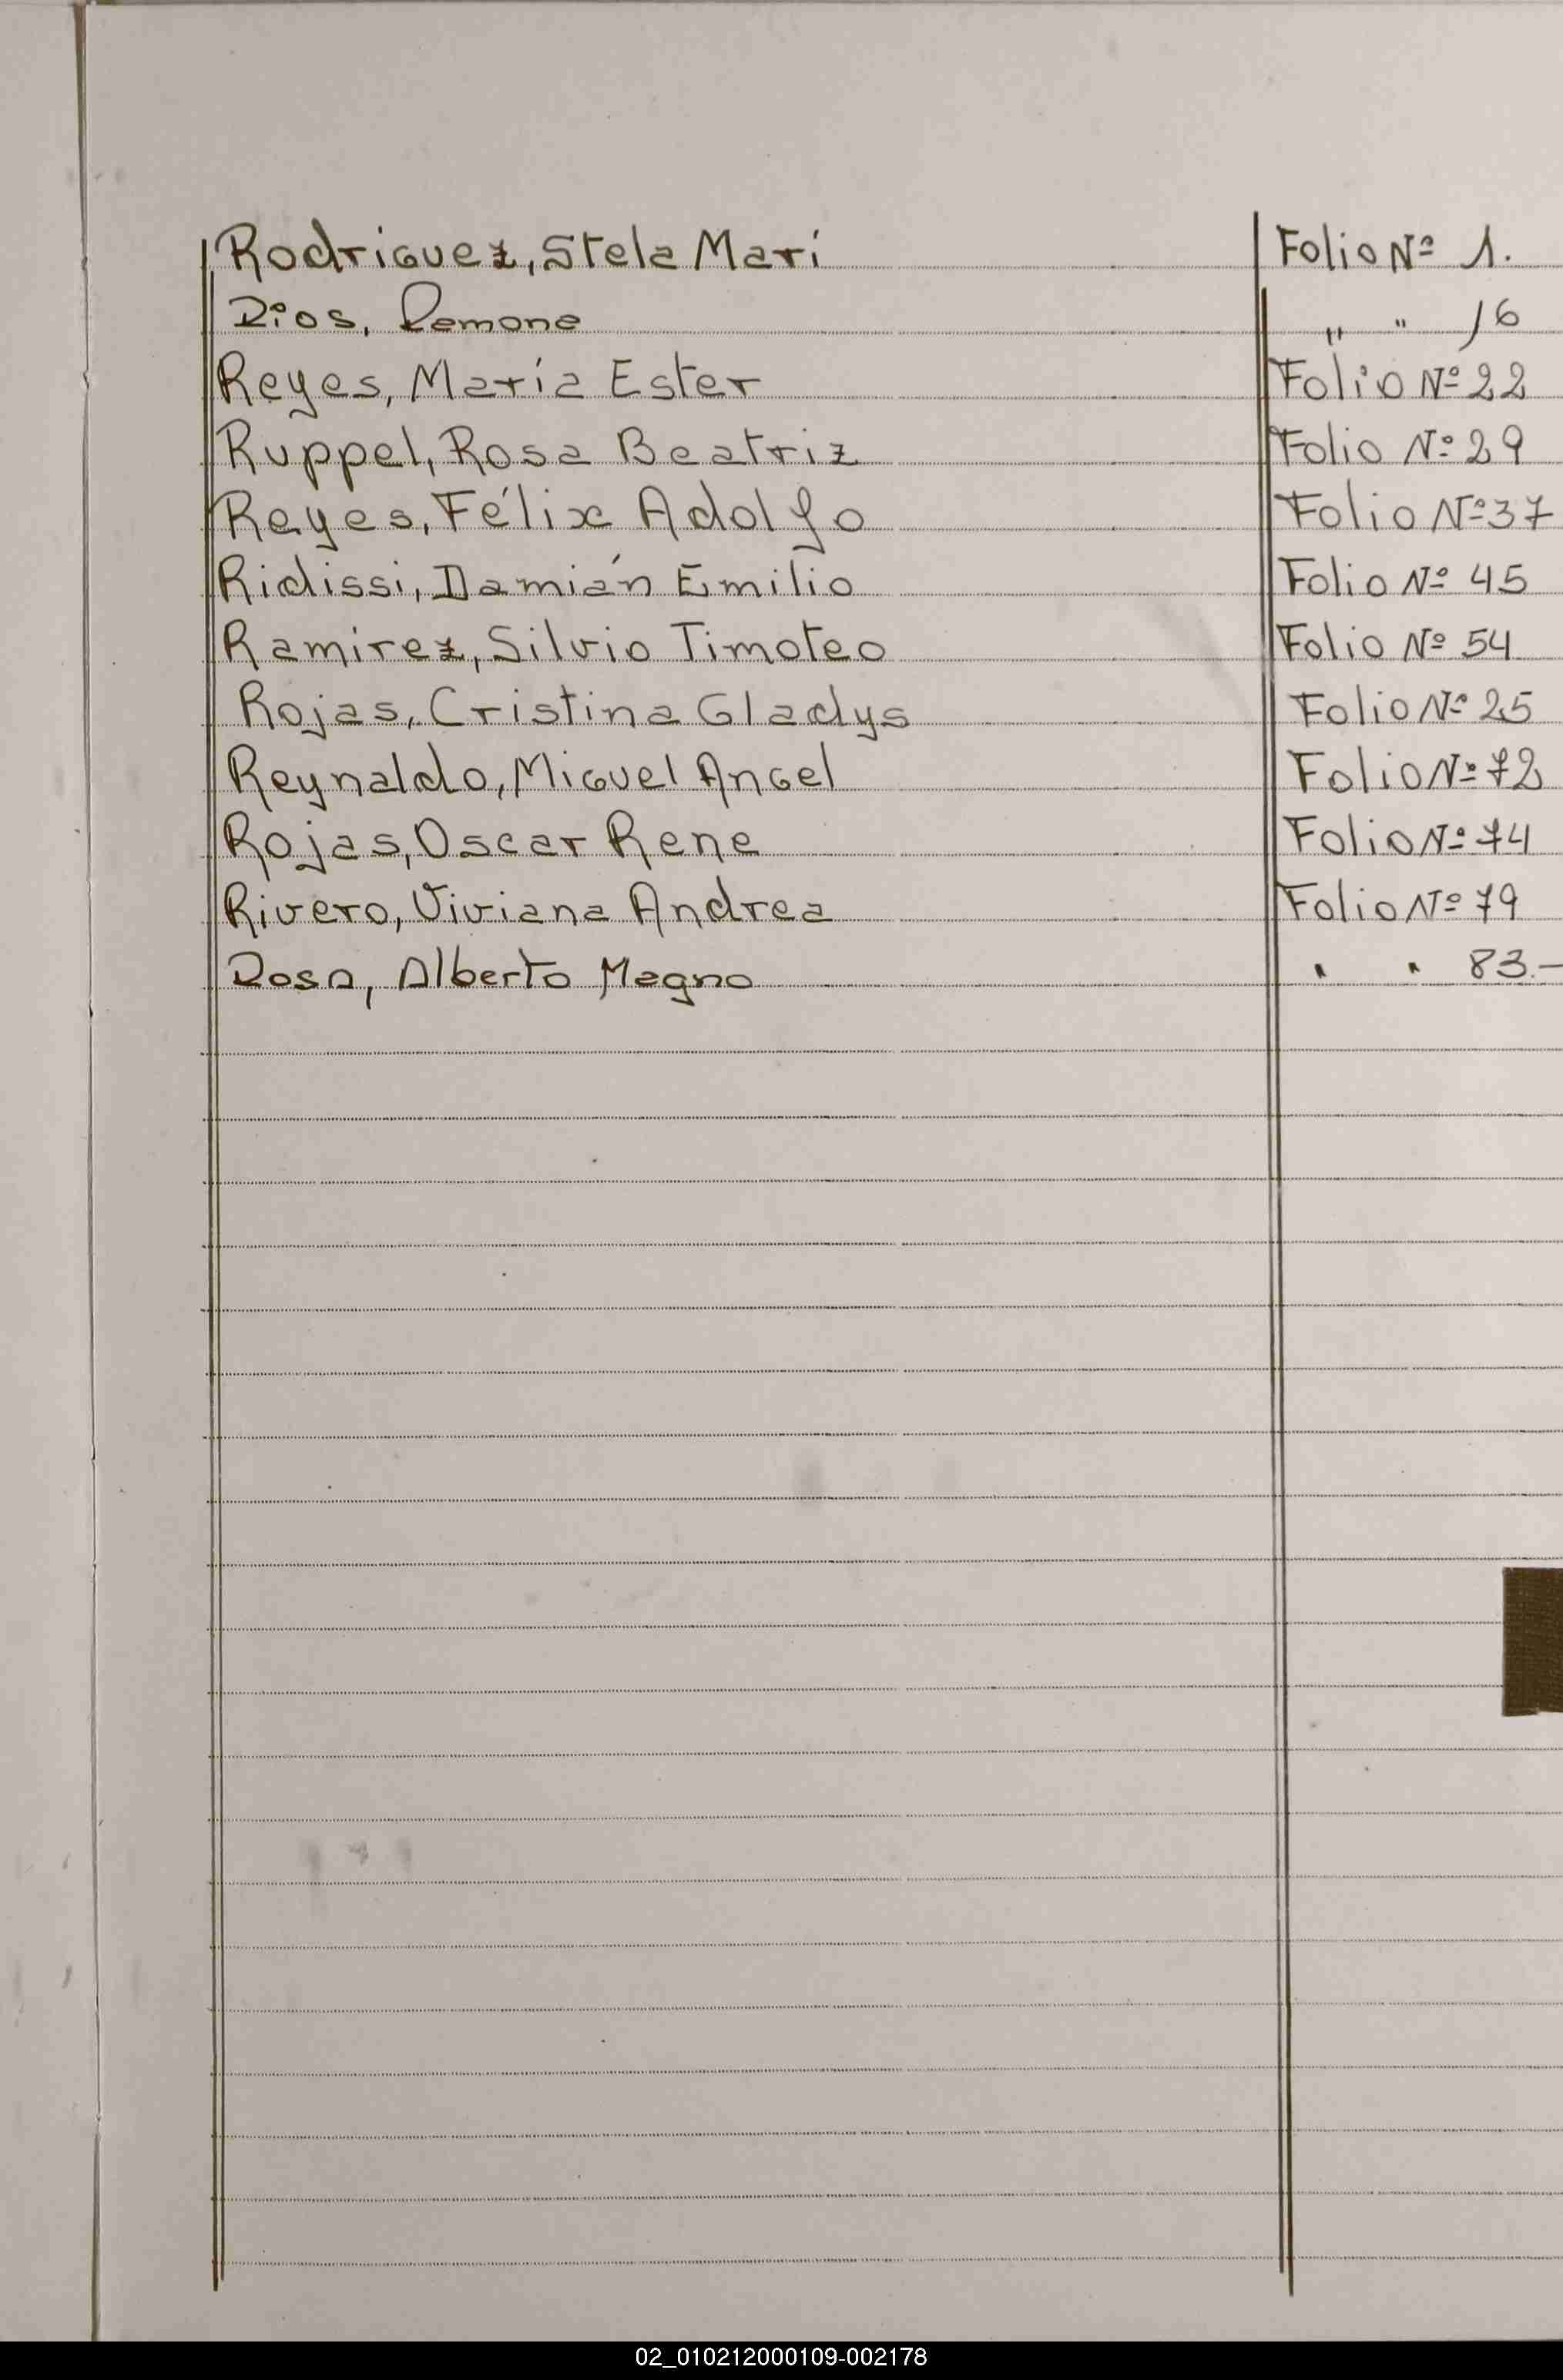 Rodriguez, Stela Mari Folio Nº 1.
Rios, Ramona " " 16
Reyes, María Ester Folio Nº 22
Ruppel, Rosa Beatriz Folio Nº 29
Reyes, Félix Adolfo Folio Nº 37
Ridissi, Damián Emilio Folio Nº 45
Ramirez, Silvio Timoteo Folio Nº 54
Rojas, Cristina Gladys Folio Nº 25
Reynaldo, Miguel Angel Folio Nº 72
Rojas, Oscar Rene Folio Nº 74
Rivero, Viviana Andrea Folio Nº 79
Rosa, Alberto Magno " " 83.-
02_010212000109-002178